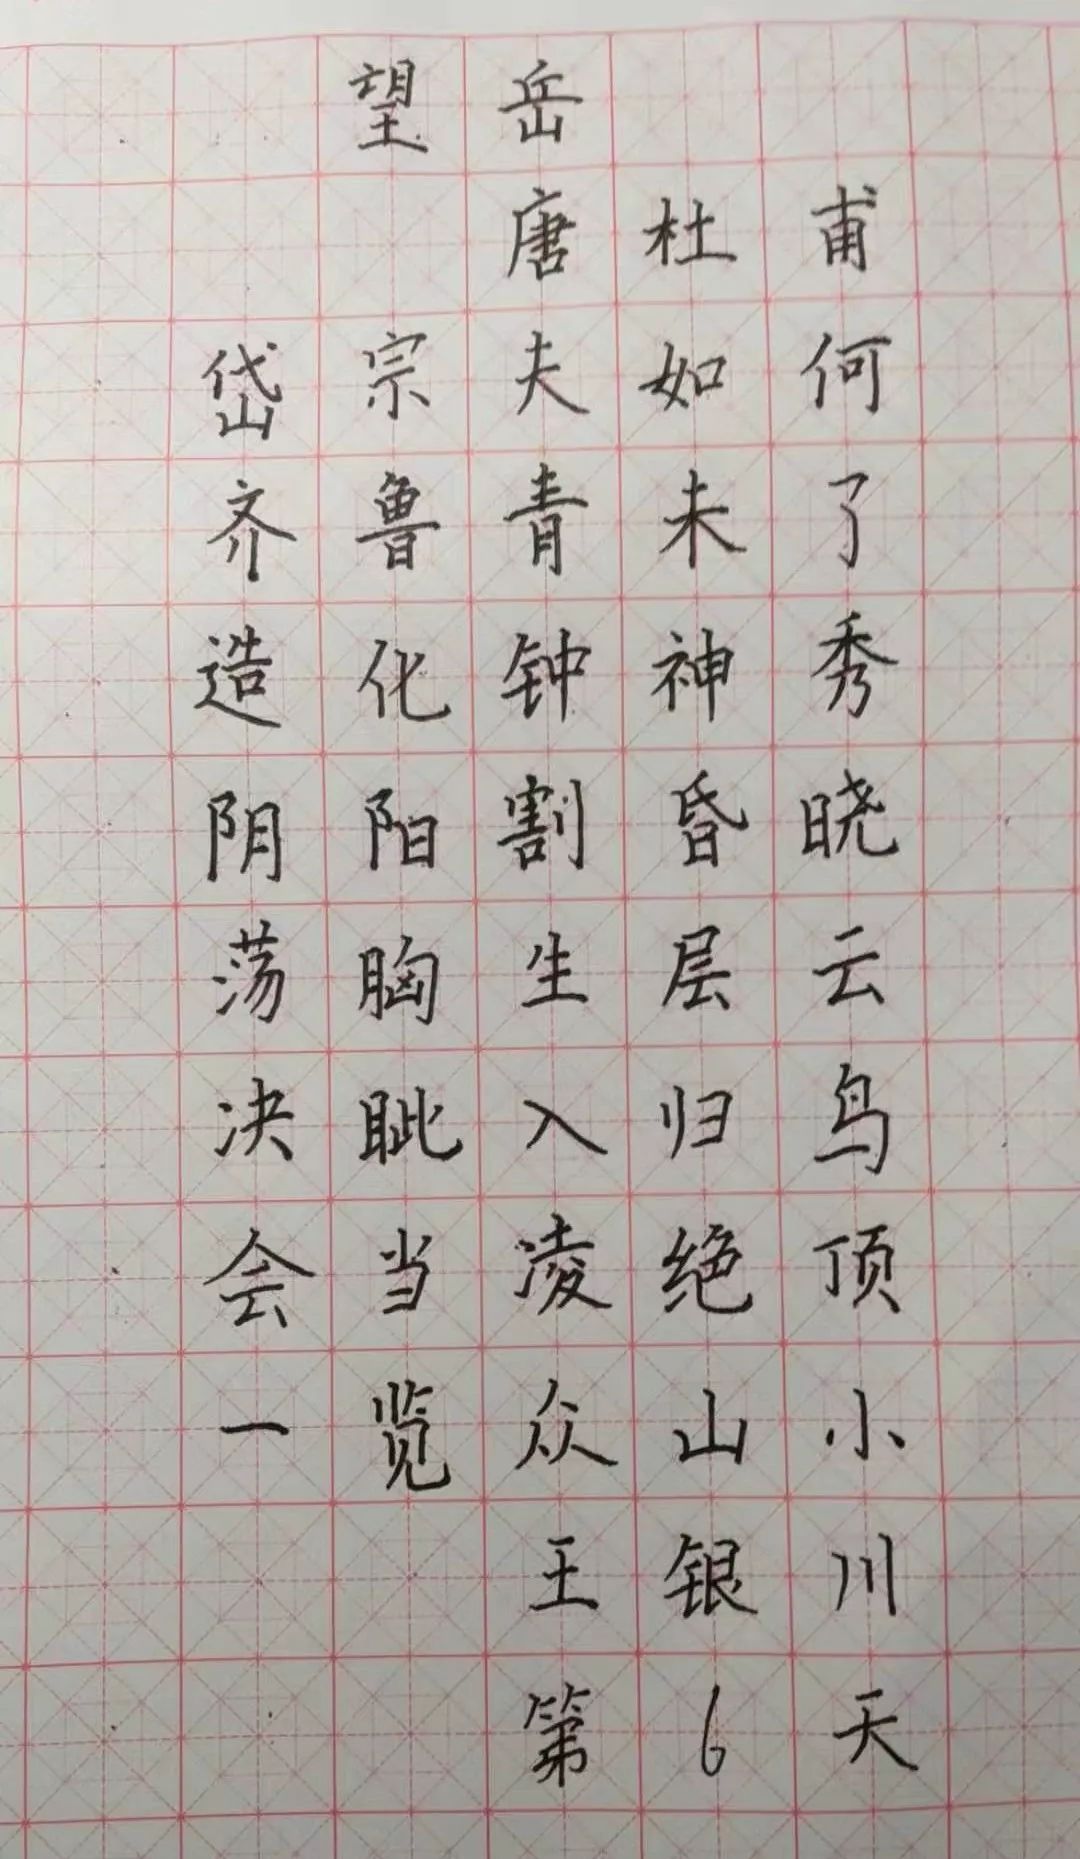 望岳
唐杜甫
岱宗夫如何
齐鲁青未了
造化钟神秀
阴阳割昏晓
荡胸生层云
决眦入归鸟
会当凌绝顶
一览众山小
王银川
第6天